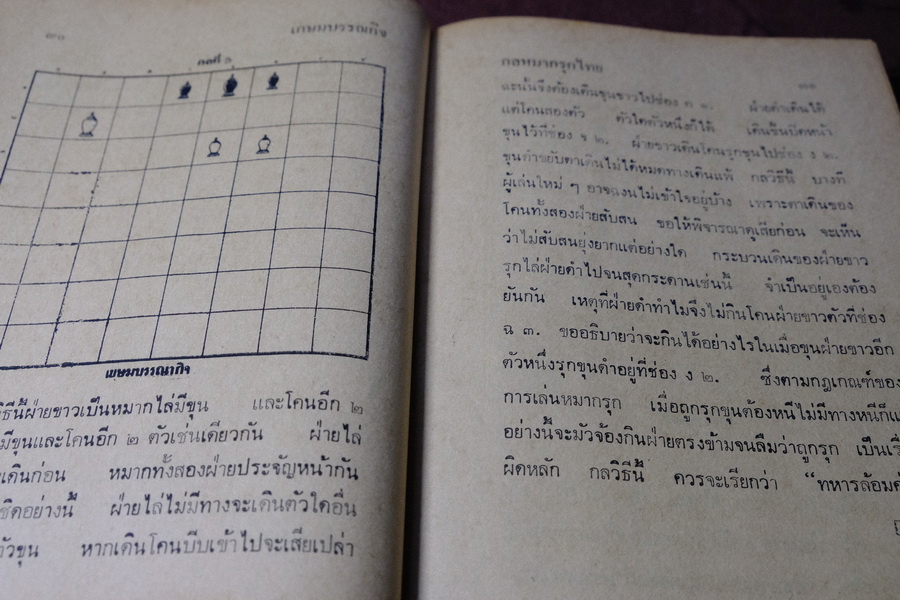 ๓๐ เกษมบรรณกิจ
กลที่ ๑
เกษมบรรณกิจ
วิธีนี้ฝ่ายขาวเป็นหมากไล่มีขุน และโคนอีก ๒
มีขุนและโคนอีก ๒ ตัวเช่นเดียวกัน ฝ่ายไล่
เดินก่อน หมากทั้งสองฝ่ายประจัญหน้ากัน
ชิดอย่างนี้ ฝ่ายไล่ไม่มีทางจะเดินตัวใดอื่น
ตัวขุน หากเดินโคนบีบเข้าไปจะเสียเปล่า
กลหมากรุกไทย ๓๑
ฉะนั้นจึงต้องเดินขุนขาวไปช่อง ค ๑. ฝ่ายดำเดินได้
แต่โคนสองตัว ตัวใดตัวหนึ่งก็ได้ เดินขึ้นปิดหน้า
ขุนไว้ที่ช่อง ๒. ฝ่ายขาวเดินโคนรุกขุนไปช่อง ง ๒.
ขุนดำขยับตาเดินไม่ได้หมดทางเดินแพ้ กลวิธีนี้ บางที
ผู้เล่นใหม่ ๆ อาจฉงนไม่เข้าใจอยู่บ้าง เพราะตาเดินของ
โคนทั้งสองฝ่ายสับสน ขอให้พิจารณาดูเสียก่อน จะเห็น
ว่าไม่สับสนยุ่งยากแต่อย่างใด กระบวนเดินของฝ่ายขาว
รุกไล่ฝ่ายดำไปจนสุดกระดานเช่นนี้ จำเป็นอยู่เองต้อง
ยันกัน เหตุที่ฝ่ายดำทำไมจึงไม่กินโคนฝ่ายขาวตัวที่ช่อง
ฉ ๓. ขออธิบายว่าจะกินได้อย่างไรในเมื่อขุนฝ่ายขาวอีก
ตัวหนึ่งรุกขุนดำอยู่ที่ช่อง ง ๒. ซึ่งตามกฎเกณฑ์ของ
การเล่นหมากรุก เมื่อถูกรุกขุนต้องหนีไม่มีทางหนีก็แ
อย่างนี้จะมัวจ้องกินฝ่ายตรงข้ามจนลืมว่าถูกรุก เป็นเรื่
ผิดหลัก กลวิธีนี้ ควรจะเรียกว่า “ทหารล้อมค